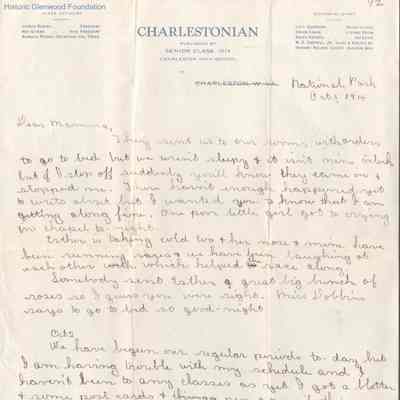 Historic Glenwood Foundation
92
CHARLESTONIAN
PUBLISHED BY
SENIOR CLASS, 1914
CHARLESTON HIGH SCHOOL
CHARLESTON, W. VA.
National Park
Oct 1914
Dear Mamma,
They sent us to our rooms with orders
to go to bed but we weren't sleepy & it isn't nine o'clock
but if I stop off suddenly you'll know they came on &
stopped me. There hasn't enough happened yet
to write about but I wanted you to know that I am
getting along fine. One poor little girl got to crying
in chapel to-night.
Esther is taking cold too & her nose & mine have
been running races & we have been laughing at
each other which helped the race along.
Somebody sent Esther a great big bunch of
roses so I guess you were right. Miss Dobbins
says to go to bed so good-night
Oct 2
We have begun our regular periods to-day but
I am having trouble with my schedule and I
haven't been to any classes as yet. I got a letter
& some post cards & things